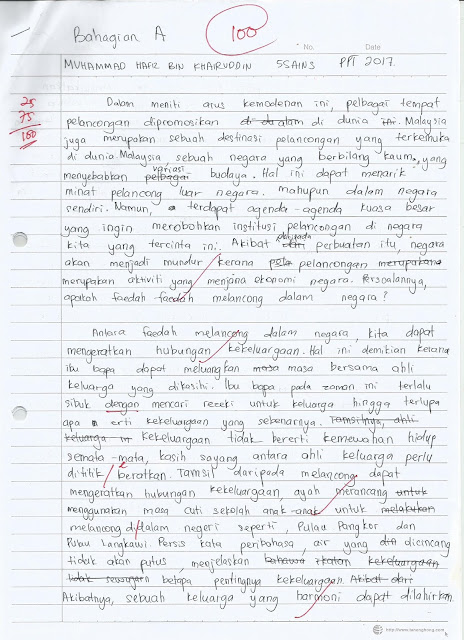 Bahagian A
100
No.
Date
MUHAMMAD HAFIZ BIN KHAIRUDDIN 5SAINS PPT 2017
25
75
100
Dalam meniti arus kemodenan ini, pelbagai tempat
pelancongan dipromosikan di dunia ini. Malaysia
juga merupakan sebuah destinasi pelancongan yang terkemuka
di dunia. Malaysia sebuah negara yang berbilang kaum, yang
menyebabkan pelbagai variasi budaya. Hal ini dapat menarik
minat pelancong luar negara, mahupun dalam negara
sendiri. Namun, terdapat agenda-agenda kuasa besar
yang ingin merobohkan institusi pelancongan di negara
kita yang tercinta ini. Akibat dari daripada perbuatan itu, negara
akan menjadi mundur kerana pola pelancongan merupakan
merupakan aktiviti yang menjana ekonomi negara. Persoalannya,
apakah faedah-faedah melancong dalam negara?
Antara faedah melancong dalam negara, kita dapat
mengeratkan hubungan kekeluargaan. Hal ini demikian kerana
ibu bapa dapat meluangkan masa masa bersama ahli
keluarga yang dikasihi. Ibu bapa pada zaman ini terlalu
sibuk dengan mencari rezeki untuk keluarga hingga terlupa
apa erti kekeluargaan yang sebenarnya. Tamsilnya, ahli
keluarga Kekeluargaan tidak bererti kemewahan hidup
semata-mata, kasih sayang antara ahli keluarga perlu
dititik beratkan. Tamsil daripada melancong dapat
mengeratkan hubungan kekeluargaan, ayah merancang untuk
menggunakan masa cuti sekolah anak-anak untuk melakukan
melancong di dalam negeri seperti, Pulau Pangkor dan
Pulau Langkawi. Persis kata peribahasa, air yang dicincang
tidak akan putus, menjelaskan bahawa ikatan kekeluargaan
tidak betapa pentingnya kekeluargaan. Akibat dari
Akibatnya, sebuah keluarga yang harmoni dapat dilahirkan.
http://www.lamanghong.com